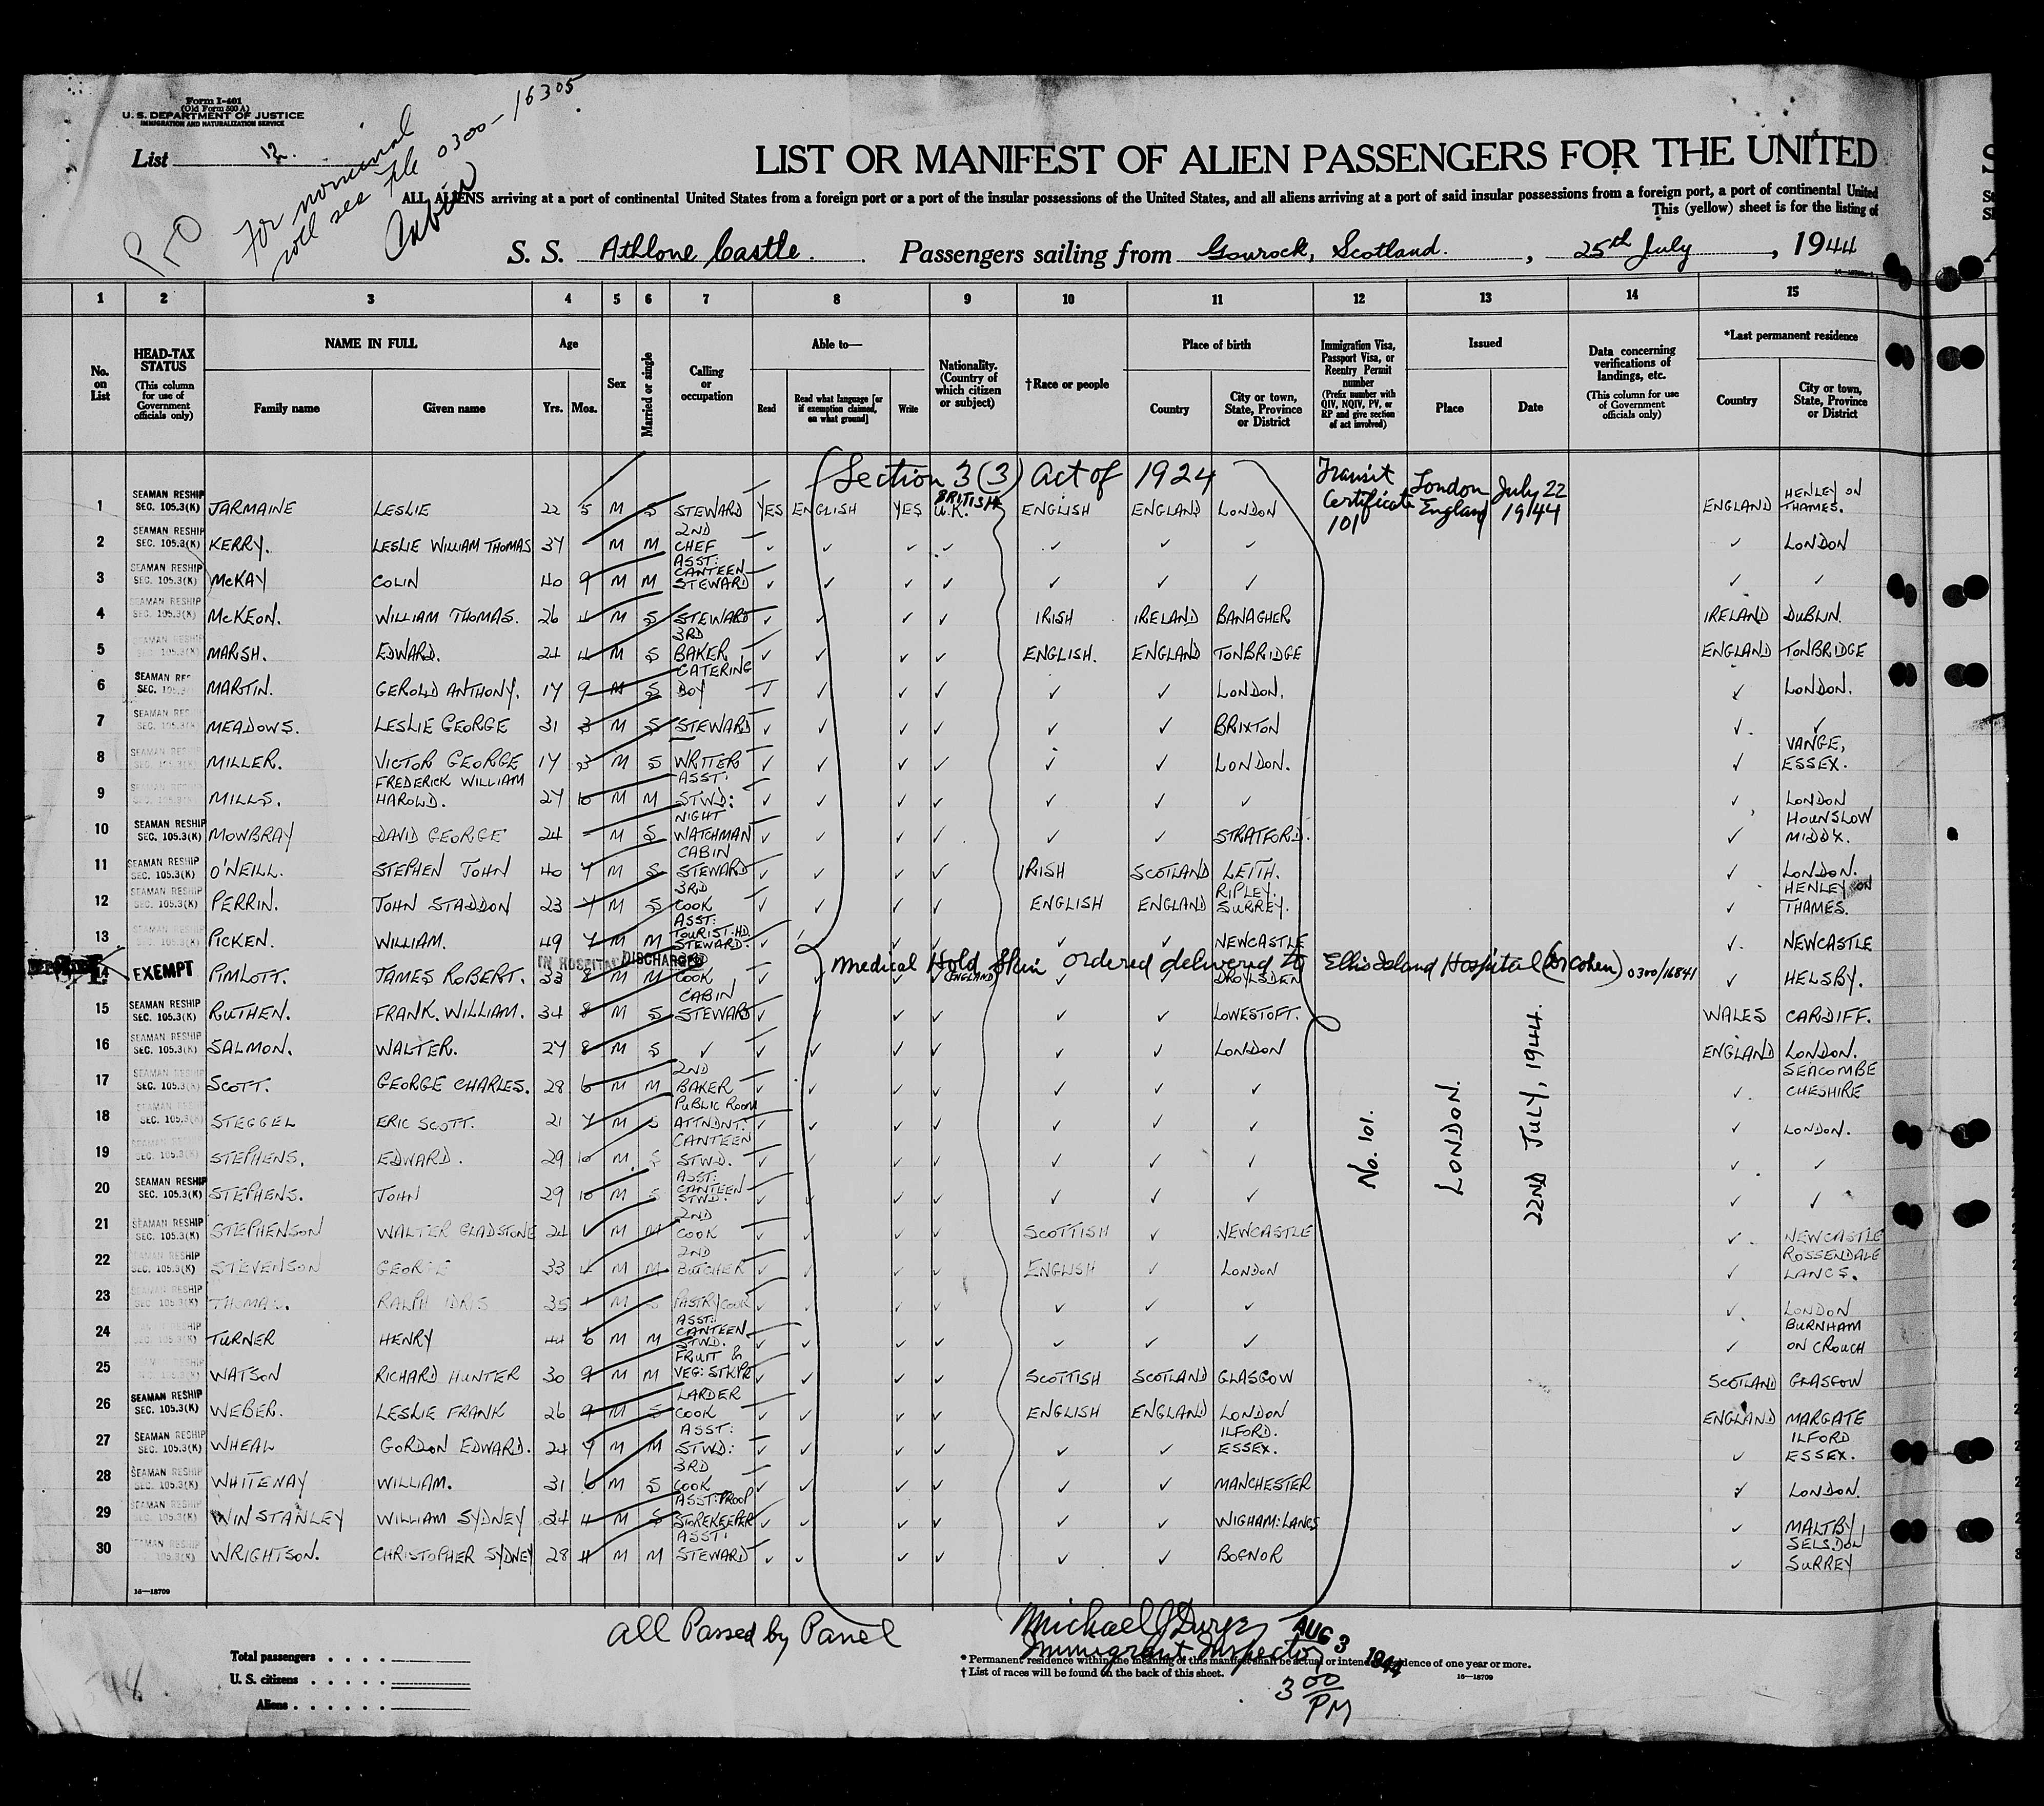 Form I-401
(Old Form 500 A)
U. S. DEPARTMENT OF JUSTICE
IMMIGRATION AND NATURALIZATION SERVICE
List 12.
P-O
For nominal
roll see file 0300-16305
Cabin
LIST OR MANIFEST OF ALIEN PASSENGERS FOR THE UNITED
ALL ALIENS arriving at a port of continental United States from a foreign port or a port of the insular possessions of the United States, and all aliens arriving at a port of said insular possessions from a foreign port, a port of continental United
This (yellow) sheet is for the listing of
S. S. Athlone Castle. Passengers sailing from Gourock, Scotland. , 25th July , 1944
1 2 3 4 5 6 7 8 9 10 11 12 13 14 15
No. on List
HEAD-TAX STATUS (This column for use of Government officials only)
NAME IN FULL Family name Given name
Age Yrs. Mos.
Sex
Married or single
Calling or occupation
Able to— Read Read what language [or if exemption claimed, on what ground] Write
Nationality. (Country of which citizen or subject)
†Race or people
Place of birth Country City or town, State, Province or District
Immigration Visa, Passport Visa, or Reentry Permit number (Prefix number with QIV, NQIV, PV, or RP and give section of act involved)
Issued Place Date
Data concerning verifications of landings, etc. (This column for use of Government officials only)
*Last permanent residence Country City or town, State, Province or District
Section 3(3) Act of 1924
Transit Certificate 101 London England July 22 1944
1 SEAMAN RESHIP SEC. 105.3(K) JARMAINE LESLIE 22 5 M S STEWARD YES ENGLISH YES BRITISH U.K. ENGLISH ENGLAND LONDON ENGLAND HENLEY ON THAMES.
2 SEAMAN RESHIP SEC. 105.3(K) KERRY. LESLIE WILLIAM THOMAS 37 M M 2ND CHEF ✓ ✓ ✓ ✓ ✓ ✓ ✓ ✓ LONDON
3 SEAMAN RESHIP SEC. 105.3(K) McKAY COLIN 40 9 M M ASST: CANTEEN STEWARD ✓ ✓ ✓ ✓ ✓ ✓ ✓ ✓ ✓
4 SEAMAN RESHIP SEC. 105.3(K) McKEON. WILLIAM THOMAS. 26 4 M S STEWARD ✓ ✓ ✓ ✓ IRISH IRELAND BANAGHER IRELAND DUBLIN.
5 SEAMAN RESHIP SEC. 105.3(K) MARSH. EDWARD. 24 4 M S 3RD BAKER ✓ ✓ ✓ ✓ ENGLISH. ENGLAND TONBRIDGE ENGLAND TONBRIDGE
6 SEAMAN RES SEC. 105.3 MARTIN. GEROLD ANTHONY. 17 9 M S CATERING BOY ✓ ✓ ✓ ✓ ✓ ✓ LONDON. ✓ LONDON.
7 SEAMAN RES SEC. 105.3(K) MEADOWS. LESLIE GEORGE 31 3 M S STEWARD ✓ ✓ ✓ ✓ ✓ ✓ BRIXTON ✓ ✓
8 SEAMAN RESHIP SEC. 105.3(K) MILLER. VICTOR GEORGE 17 3 M S WRITER ✓ ✓ ✓ ✓ ✓ ✓ LONDON. ✓ VANGE, ESSEX.
9 SEAMAN RESHIP SEC. 105.3(K) MILLS. FREDERICK WILLIAM HAROLD. 27 10 M M ASST: STWD: ✓ ✓ ✓ ✓ ✓ ✓ ✓ ✓ LONDON
10 SEAMAN RESHIP SEC. 105.3(K) MOWBRAY DAVID GEORGE 24 M S NIGHT WATCHMAN ✓ ✓ ✓ ✓ ✓ ✓ STRATFORD. ✓ HOUNSLOW MIDDX.
11 SEAMAN RESHIP SEC. 105.3(K) O'NEILL. STEPHEN JOHN 40 7 M S CABIN STEWARD ✓ ✓ ✓ ✓ IRISH SCOTLAND LEITH. ✓ LONDON.
12 SEAMAN RESHIP SEC. 105.3(K) PERRIN. JOHN STADDON 23 7 M S 3RD COOK ✓ ✓ ✓ ✓ ENGLISH ENGLAND RIPLEY. SURREY. ✓ HENLEY ON THAMES.
13 SEAMAN RESHIP SEC. 105.3(K) PICKEN. WILLIAM. 49 7 M M ASST: TOURIST: HD. STEWARD. ✓ ✓ ✓ ✓ ✓ ✓ NEWCASTLE ✓ NEWCASTLE
IN HOSPITAL DISCHARGED
Medical Hold Skin ordered delivered to Ellis Island Hospital (Dr Cohen) 0300/16841
14 EXEMPT PIMLOTT. JAMES ROBERT. 33 8 M M COOK ✓ ✓ ✓ ✓ (ENGLAND) ✓ ✓ DROYLSDEN ✓ HELSBY.
15 SEAMAN RESHIP SEC. 105.3(K) RUTHEN. FRANK. WILLIAM. 34 8 M S CABIN STEWARD ✓ ✓ ✓ ✓ ✓ ✓ LOWESTOFT. WALES CARDIFF.
16 SEAMAN RESHIP SEC. 105.3(K) SALMON. WALTER. 27 8 M S ✓ ✓ ✓ ✓ ✓ ✓ ✓ LONDON ENGLAND LONDON.
17 SEAMAN RESHIP SEC. 105.3(K) SCOTT. GEORGE CHARLES. 28 6 M M 2ND BAKER ✓ ✓ ✓ ✓ ✓ ✓ ✓ ✓ SEACOMBE CHESHIRE
18 SEAMAN RESHIP SEC. 105.3(K) STEGGEL ERIC SCOTT. 21 7 M S PUBLIC ROOM ATTNDNT. ✓ ✓ ✓ ✓ ✓ ✓ ✓ ✓ LONDON.
19 SEAMAN RESHIP SEC. 105.3(K) STEPHENS. EDWARD. 29 10 M S CANTEEN STWD. ✓ ✓ ✓ ✓ ✓ ✓ ✓ ✓ ✓
20 SEAMAN RESHIP SEC. 105.3(K) STEPHENS. JOHN 29 10 M S ASST: CANTEEN STWD. ✓ ✓ ✓ ✓ ✓ ✓ ✓ ✓ ✓
No. 101. LONDON. 22ND JULY, 1944.
21 SEAMAN RESHIP SEC. 105.3(K) STEPHENSON WALTER GLADSTONE 24 6 M M 2ND COOK ✓ ✓ ✓ ✓ SCOTTISH ✓ NEWCASTLE ✓ NEWCASTLE
22 SEAMAN RESHIP SEC. 105.3(K) STEVENSON GEORGE 33 4 M M 2ND BUTCHER ✓ ✓ ✓ ✓ ENGLISH ✓ LONDON ✓ ROSSENDALE LANCS.
23 SEAMAN RESHIP SEC. 105.3(K) THOMAS. RALPH IDRIS 35 M S PASTRYCOOK ✓ ✓ ✓ ✓ ✓ ✓ ✓ ✓ LONDON
24 SEAMAN RESHIP SEC. 105.3(K) TURNER HENRY 44 6 M M ASST: CANTEEN STWD. ✓ ✓ ✓ ✓ ✓ ✓ ✓ ✓ BURNHAM ON CROUCH
25 SEAMAN RESHIP SEC. 105.3(K) WATSON RICHARD HUNTER 30 9 M M FRUIT & VEG: STKPR ✓ ✓ ✓ ✓ SCOTTISH SCOTLAND GLASGOW SCOTLAND GLASGOW
26 SEAMAN RESHIP SEC. 105.3(K) WEBER. LESLIE FRANK 26 9 M S LARDER COOK ✓ ✓ ✓ ✓ ENGLISH ENGLAND LONDON ENGLAND MARGATE
27 SEAMAN RESHIP SEC. 105.3(K) WHEAL GORDON EDWARD. 24 9 M M ASST: STWD: ✓ ✓ ✓ ✓ ✓ ✓ ILFORD. ESSEX. ✓ ILFORD ESSEX.
28 SEAMAN RESHIP SEC. 105.3(K) WHITENAY WILLIAM. 31 6 M S 3RD COOK ✓ ✓ ✓ ✓ ✓ ✓ MANCHESTER ✓ LONDON.
29 SEAMAN RESHIP SEC. 105.3(K) WINSTANLEY WILLIAM SYDNEY 24 4 M S ASST: PROP STOREKEEPER ✓ ✓ ✓ ✓ ✓ ✓ WIGHAM: LANCS ✓ MALTBY
30 SEAMAN RESHIP SEC. 105.3(K) WRIGHTSON. CHRISTOPHER SYDNEY 28 11 M M ASST: STEWARD ✓ ✓ ✓ ✓ ✓ ✓ BOGNOR ✓ SELSDON SURREY
16—18709
All Passed by Panel
Immigrant Inspector
AUG 3 1944
3 00 PM
Total passengers
U. S. citizens
Aliens
* Permanent residence within the meaning of this manifest shall be actual or intended residence of one year or more.
† List of races will be found on the back of this sheet.
16—18709